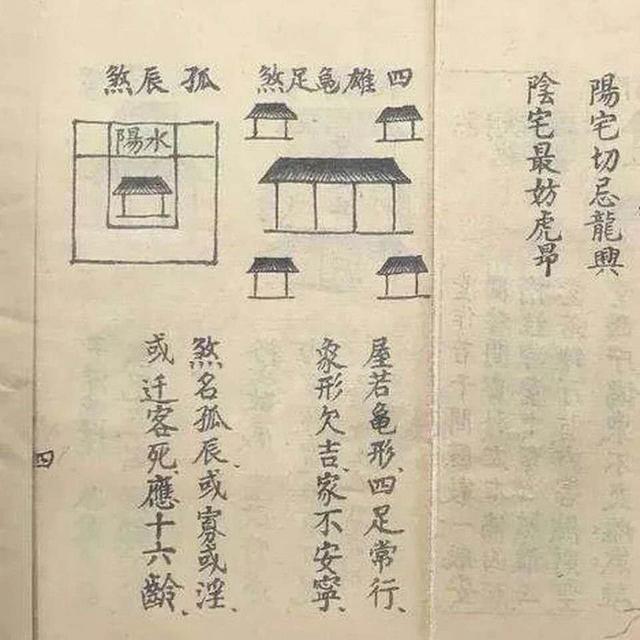 陽宅切忌龍興
陰宅最妨虎昂
四雄龜足煞
屋若龜形、四足常行、
象形欠吉、家不安寧、
孤辰煞
陽水
煞名孤辰、或寡或淫、
或迁客死、應十六齡、
四